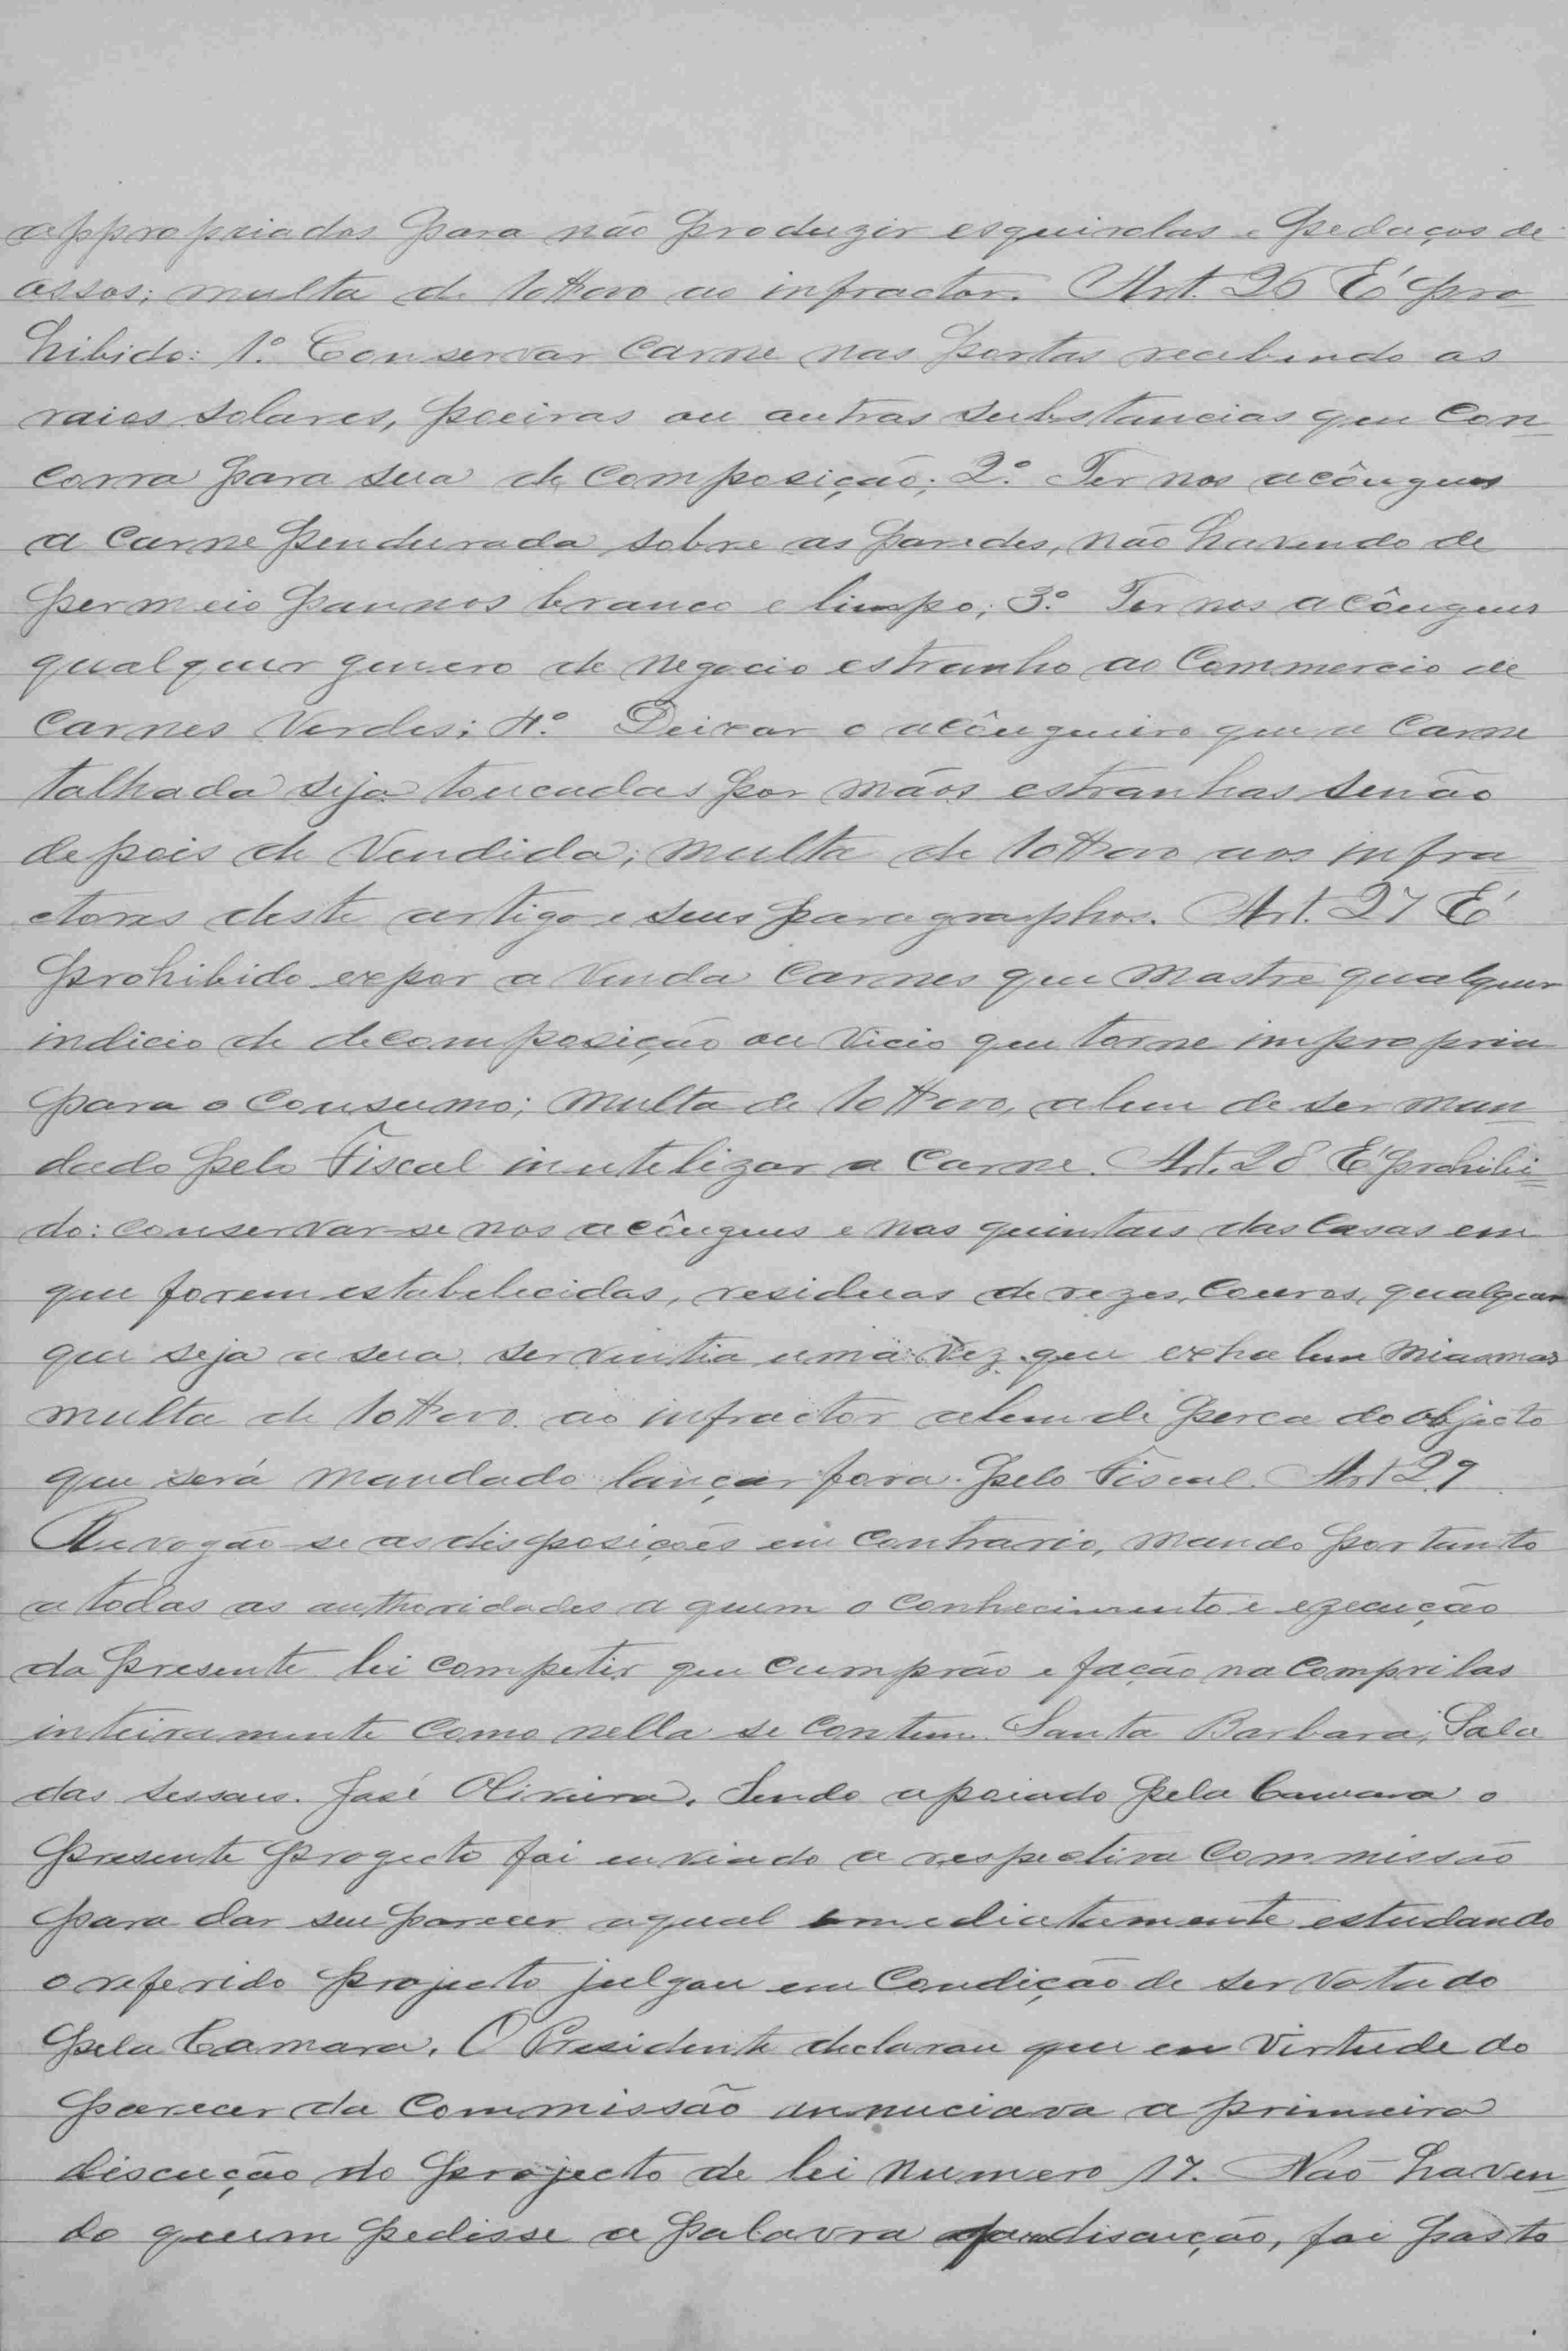 appropriados para não produzir esquirolas e pedaços de
ossos; multa de 10$000 ao infractor. Art. 26 É pro
hibido: 1º Conservar carne nas portas recebendo os
raios solares, poeiras ou outras substancias que con
corra para sua de composição; 2º Ter nos acôugues
a carne pendurada sobre as paredes, não havendo de
permeio pannos branco e limpo; 3º Ter nos acôugues
qualquer genero de negocio estranho ao Commercio de
Carnes Verdes; 4º Deixar o acôugueiro que a carne
talhada seja toucadas por mãos estranhas senão
depois de vendida; multa de 10$000 aos infra
ctores deste artigo e seus paragraphos. Art. 27 É
prohibido expor a venda carnes que mostre qualquer
indicio de decomposição ou vicio que torne impropria
para o consumo; multa de 10$000, alem de ser man
dado pelo Fiscal inutelizar a carne. Art. 28 É prohibi
do: conservar-se nos acôugues e nas quintais das Casas em
que forem estabelecidas, residuos de rezes, couros, qualquer
que seja a sua serventia uma vez que exhalem miasmas
multa de 10$000 ao infractor alem de perca do objecto
que será mandado lançar fora pelo Fiscal. Art 29
Revogão-se as disposições em contrario, mando portanto
a todas as authoridades a quem o conhecimento e ezecução
da presente lei competir que cumprão e fação na comprilas
inteiramente como nella se contem. Santa Barbara, Sala
das sessoes. José Oliveira. Sendo apoiado pela Camara o
presente progecto foi enviado a respectiva Commissão
para dar seu parecer aqual emediatamente estudando
o referido projecto julgou em Condição de ser votado
pela Camara. O Presidente declarou que em virtude do
parecer da Commissão annuciava a primeira
discução do projecto de lei numero 17. Não haven
do quem pedisse a palavra para discução, foi posto